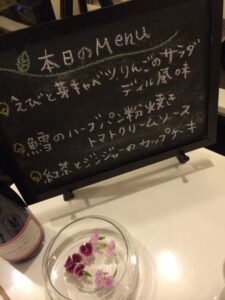 本日のMenu
えびと芽キャベツ、りんごのサラダ
ディル風味
鱈のハーブパン粉焼き
トマトクリームソース
紅茶とジンジャーのカップケーキ